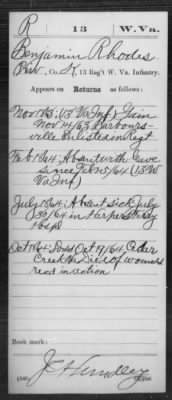 R 13 W. Va.
Benjamin Rhodes
Pvt, Co. K, 13 Reg't W. Va. Infantry.
Appears on Returns as follows:
Nov 1863; (13 Va Inf) Gain
Nov 14/63 Barbours-
ville Enlisted in Regt
Feb 1864; Absent with leave
since Feb 15/64 (13 W
Va Inf)
July 1864; Absent sick July
30/64 in Harpers Ferry
Hosp
Oct 1864; Loss Oct 19/64 Cedar
Creek Va Died of wounds
recd in action
Book mark: